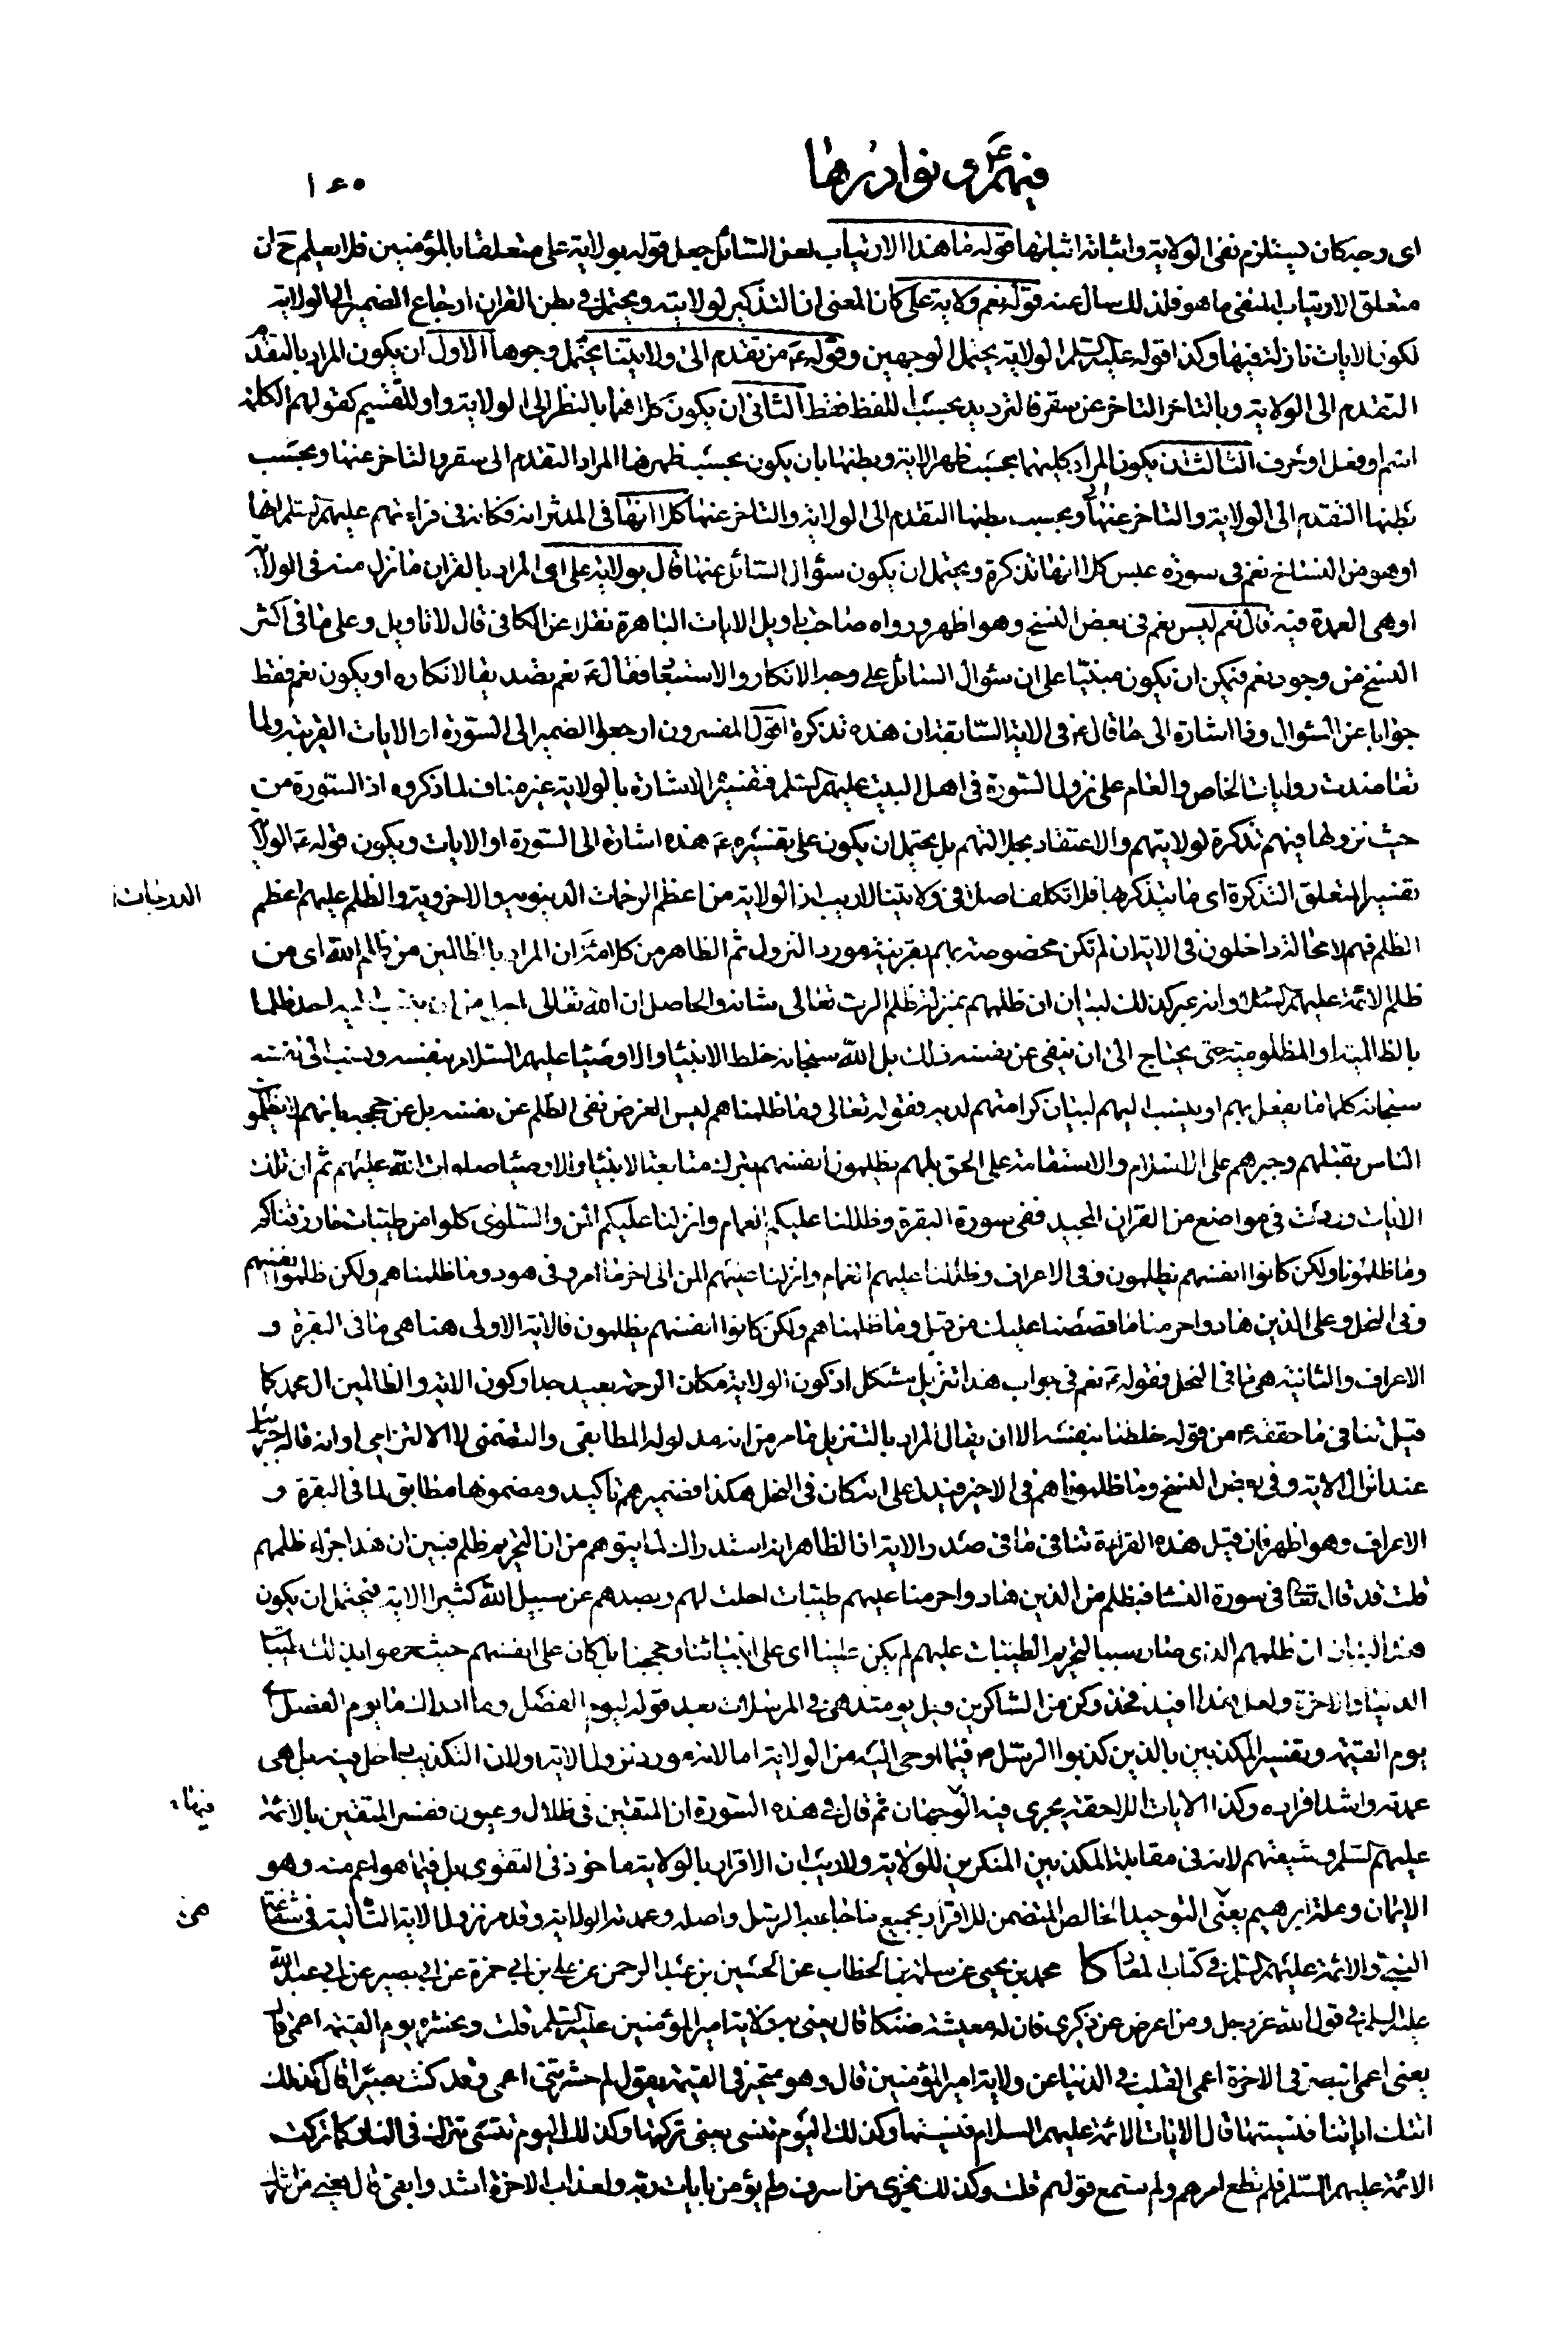 فيهم ع و نوادرها
١٥٠
اى وجه كان يستلزم نفى الولاية واثباته اثباتها قوله ما هذا الارتياب لعل السّائل جعل قوله بولاية على متعلقا بالمؤمنين فلا يعلم ح ان
متعلق الارتياب المنفى ما هو فلذلك سال عنه قوله نعم ولاية على كان المعنى ان التذكير لولايته ويحتمل فى بطن القران ارجاع الضمير الى الولاية
لكون الايات نازلة فيها وكذا قوله عليه السّلم الولاية يحتمل الوجهين وقوله ع من تقدم الى ولايتنا يحتمل وجوها الاول ان يكون المراد بالتقدّم
التقدم الى الولاية وبالتاخر التاخر عن سقر فالترديد بحسب اللفظ فقط الثانى ان يكون كلاهما بالنظر الى الولاية واو للتقسيم كقولهم الكلمة
اسم او فعل او حرف الثالث ان يكون المراد كليهما بحسب ظهر الاية وبطنها بان يكون بحسب ظهرها المراد التقدم الى سقر والتاخر عنها وبحسب
بطنها التقدم الى الولاية والتاخر عنها وبحسب بطنها التقدم الى الولاية والتاخر عنها كلا انها فى المدثر انه فكانه فى قراءتهم عليهم السّلم انها
او هو من النساخ نعم فى سورة عبس كلا انها تذكرة ويحتمل ان يكون سؤال السّائل عنها قال بولاية على اى المراد بالقران ما نزل منه فى الولاية
او هى العمدة فيه قال نعم ليس نعم فى بعض النسخ وهو اظهر ورواه صاحب تاويل الايات الباهرة نقلا عن الكافى قال لا تاويل وعلى ما فى اكثر
النسخ من وجود نعم فيمكن ان يكون مبنيّا على ان سؤال السّائل على وجه الانكار والاستبعاد فقال ع نعم تصديقا لانكاره او يكون نعم فقط
جوابا عن السّؤال وذا اشارة الى ما قال ع فى الاية السّابقة ان هذه تذكرة اقول المفسرون ارجعوا الضمير الى السّورة او الايات القريبة ولما
تعاضدت روايات الخاص والعام على نزول السّورة فى اهل البيت عليهم السّلم فتفسير الاشارة بالولاية غير مناف لما ذكروه اذ السّورة من
حيث نزولها فيهم تذكرة لولايتهم والاعتقاد بجلالتهم بل يحتمل ان يكون على تفسيره ع هذه اشارة الى السّورة او الايات ويكون قوله ع الولاية
تفسيرا لمتعلق التذكرة اى ما يتذكر بها فلا تكلف اصلا فى ولايتنا لا ريب ان الولاية من اعظم الرحمات الدنيوية والاخروية والظلم عليهم اعظم
الدرجات
الظلم فهم لا محالة داخلون فى الاية ان لم تكن مخصوصة بهم بقرينة مورد النزول ثم الظاهر من كلامه ع ان المراد بالظالمين من ظالم الله اى من
ظلم الائمة عليهم السّلم وانه عبر كذلك لبيان ان ظلمهم بمنزلة ظلم الرب تعالى شانه والحاصل ان الله تعالى اجل من ان ينسب اليه احد ظلما
بالظالمية او المظلومية حتى يحتاج الى ان ينفى عن نفسه ذلك بل الله سبحانه خلط الانبياء والاوصيا عليهم السّلام بنفسه ونسب الى نفسه
سبحانه كلما يفعل بهم او ينسب اليهم لبيان كرامتهم لديه فقوله تعالى وما ظلمناهم ليس الغرض نفى الظلم عن نفسه بل عن حججه بانهم لا يظلمو
الناس بقتلهم وجبرهم على الاسلام والاستقامة على الحق بل هم يظلمون انفسهم بترك متابعة الانبيا والاوصيا صلوات الله عليهم ثم ان تلك
الايات وردت فى مواضع من القران المجيد ففى سورة البقرة وظللنا عليكم الغمام وانزلنا عليكم المن والسّلوى كلوا من طيّبات ما رزقناكم
وما ظلمونا ولكن كانوا انفسهم يظلمون وفى الاعراف وظللنا عليهم الغمام وانزلنا عليهم المن الى اخر ما مر وفى هود وما ظلمناهم ولكن ظلموا انفسهم
وفى النحل وعلى الذين هادوا حرمنا ما قصصنا عليك من قبل وما ظلمناهم ولكن كانوا انفسهم يظلمون فالاية الاولى هنا هى ما فى البقرة و
الاعراف والثانية هى ما فى النحل فقوله ع نعم فى جواب هذا تنزيل مشكل اذ كون الولاية مكان الرحمة بعيد جدا وكون الاية والظالمين ال محمد كما
قيل تنافى ما حققه ع من قوله خلطنا بنفسه الا ان يقال المراد بالتنزيل ما مر من انه مدلوله المطابقى والتضمنى لا الالتزامى او انه قاله جبرئيل
عند انزال الاية وفى بعض النسخ وما ظلمونا هم فى الاخير فيدل على انه كان فى النحل هكذا فضمير هم تاكيد ومضمونها مطابق لما فى البقرة و
الاعراف وهو اظهر فان قيل هذه القراءة تنافى ما فى صدر الاية اذ الظاهر انه استدراك لما يتوهم من ان التحريم ظلم فبين ان هذا جزاء ظلمهم
قلت قد قال تعالى فى سورة النسا فبظلم من الذين هادوا حرمنا عليهم طيبات احلت لهم وبصدهم عن سبيل الله كثيرا الاية فيحتمل ان يكون
هذا البيان ان ظلمهم الذى صار سببا لتحريم الطيبات عليهم لم يكن علينا اى على انبيائنا وحججنا بل كان على انفسهم حيث حرموا بذلك طيبات
الدنيا والاخرة ولعل هذا افيد فخذ وكن من الشاكرين ويل يومئذ هى فى المرسلات بعد قوله ليوم الفصل وما ادراك ما يوم الفصل
يوم القيمة وتفسير المكذبين بالذين كذبوا الرسل ص فيما اوحى اليه من الولاية اما لانه مورد نزول الاية ولان التكذيب داخل فيه بل هى
عمدته واشد افراده وكذا الايات اللاحقة يجرى فيه الوجهان ثم قال فى هذه السّورة ان المتقين فى ظلال وعيون ففسر المتقين بالائمة
فيها
عليهم السّلم وشيعتهم لانه فى مقابلة المكذبين المنكرين للولاية ولا ريب ان الاقرار بالولاية ماخوذ فى التقوى بل فيما هو اعم منه وهو
الايمان وملة ابرهيم يعنى التوحيد الخالص المتضمن للاقرار بجميع ما جاء به الرسل واصله وعمدته الولاية وقد مر نزول الاية الثالثة فى شفاعة
هى
النبى والائمة عليهم السّلم فى كتاب المعاد كا محمد بن يحيى عن سلمة بن الخطاب عن الحسين بن عبد الرحمن عن على بن ابى حمزة عن ابى بصير عن ابى عبد الله
عليه السلم فى قول الله عز وجل ومن اعرض عن ذكرى فان له معيشة ضنكا قال يعنى به ولاية امير المؤمنين عليه السّلم قلت ونحشره يوم القيمة اعمى قال
يعنى اعمى البصر فى الاخرة اعمى القلب فى الدنيا عن ولاية امير المؤمنين قال وهو متحير فى القيمة يقول لم حشرتنى اعمى وقد كنت بصيرا قال كذلك
اتتك اياتنا فنسيتها قال الايات الائمة عليهم السلام فنسيتها وكذلك اليوم تنسى يعنى تركتها وكذلك اليوم تنسى تترك فى النار كما تركت
الائمة عليهم السّلم فلم تطع امرهم ولم تسمع قولهم قلت وكذلك نجزى من اسرف ولم يؤمن بايات ربه ولعذاب الاخرة اشد وابقى قال يعنى من اشرك